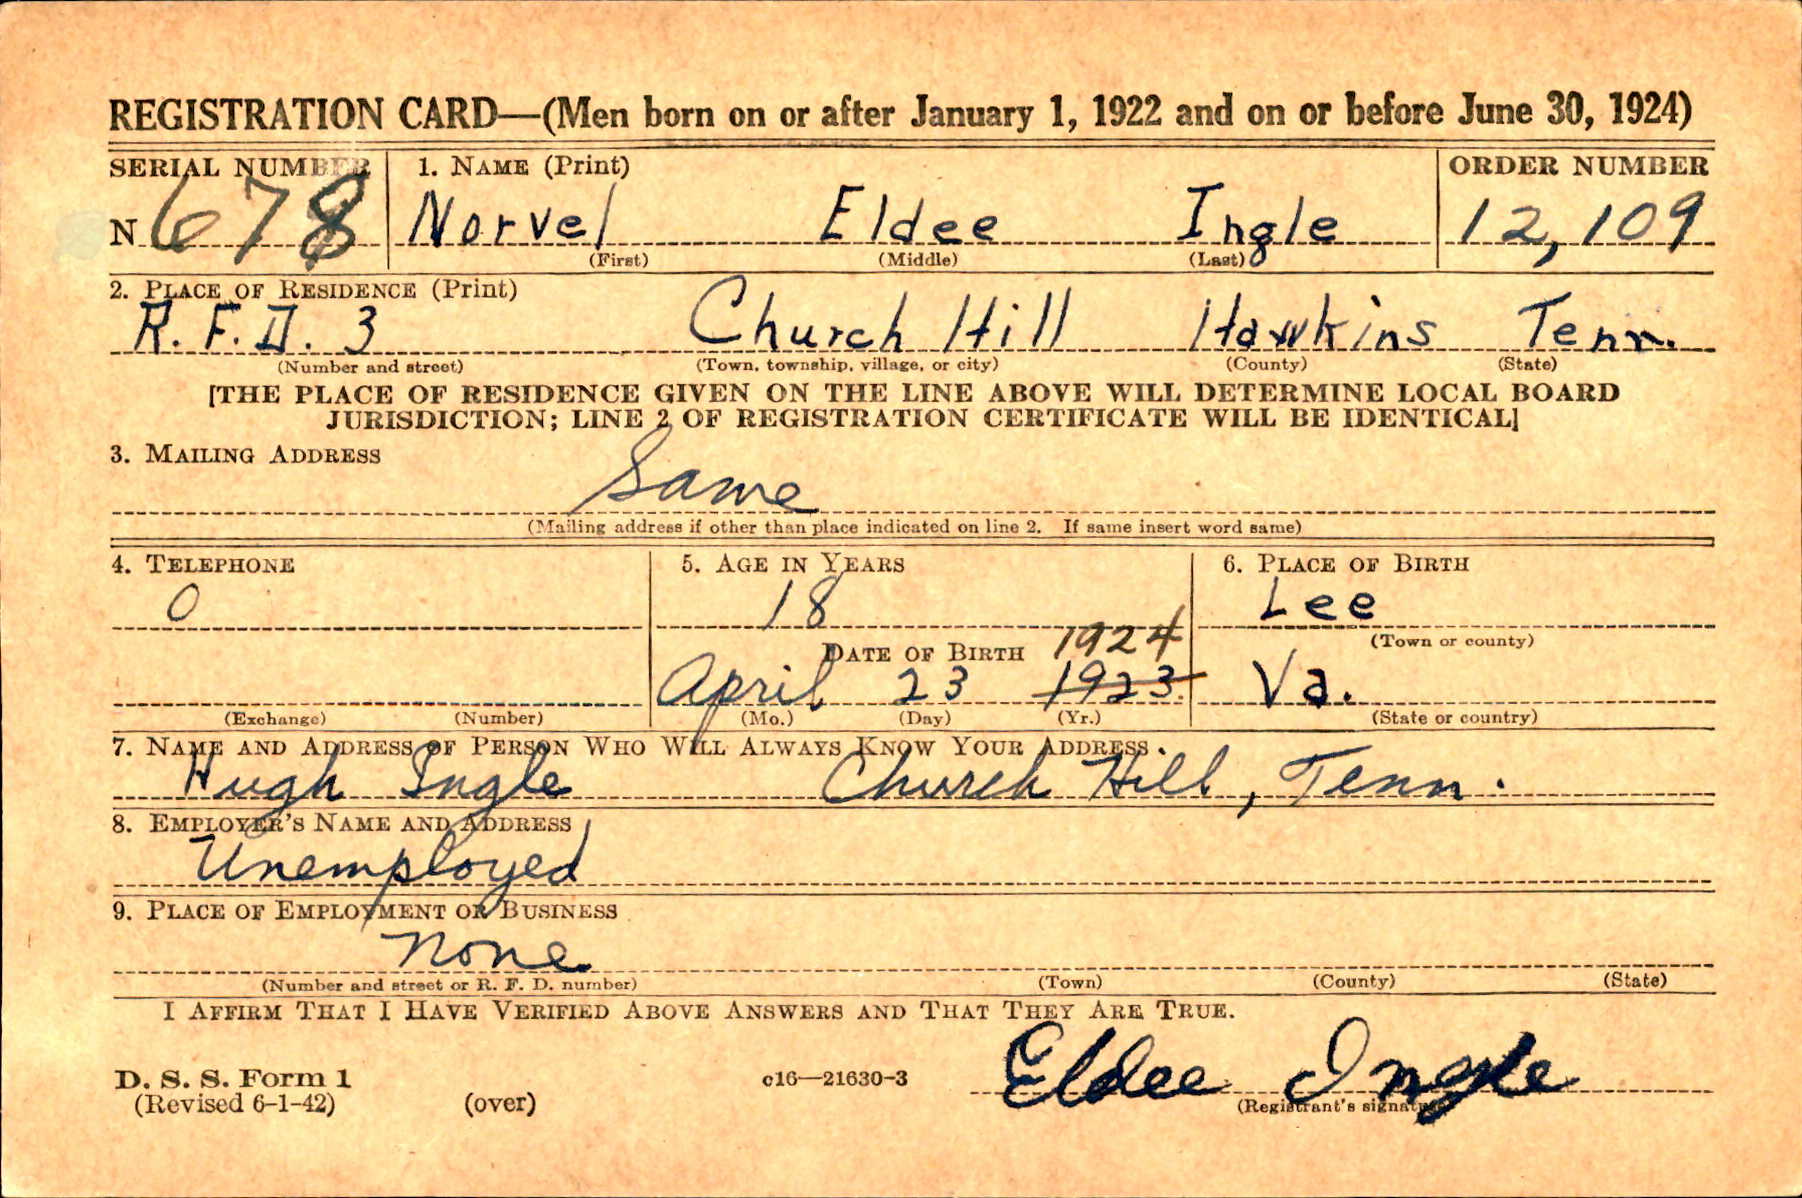 REGISTRATION CARD—(Men born on or after January 1, 1922 and on or before June 30, 1924)
SERIAL NUMBER 1. NAME (Print) ORDER NUMBER
N 678 Norvel Eldee Ingle 12,109
(First) (Middle) (Last)
2. PLACE OF RESIDENCE (Print)
R. F. D. 3 Church Hill Hawkins Tenn.
(Number and street) (Town, township, village, or city) (County) (State)
[THE PLACE OF RESIDENCE GIVEN ON THE LINE ABOVE WILL DETERMINE LOCAL BOARD
JURISDICTION; LINE 2 OF REGISTRATION CERTIFICATE WILL BE IDENTICAL]
3. MAILING ADDRESS
Same
(Mailing address if other than place indicated on line 2. If same insert word same)
4. TELEPHONE 5. AGE IN YEARS 6. PLACE OF BIRTH
0 18 Lee
(Town or county)
DATE OF BIRTH 1924
April 23 1923. Va.
(Exchange) (Number) (Mo.) (Day) (Yr.) (State or country)
7. NAME AND ADDRESS OF PERSON WHO WILL ALWAYS KNOW YOUR ADDRESS
Hugh Ingle Church Hill, Tenn.
8. EMPLOYER'S NAME AND ADDRESS
Unemployed
9. PLACE OF EMPLOYMENT OR BUSINESS
None
(Number and street or R. F. D. number) (Town) (County) (State)
I AFFIRM THAT I HAVE VERIFIED ABOVE ANSWERS AND THAT THEY ARE TRUE.
Eldee Ingle
D. S. S. Form 1 c16—21630-3
(Revised 6-1-42) (over) (Registrant's signature)